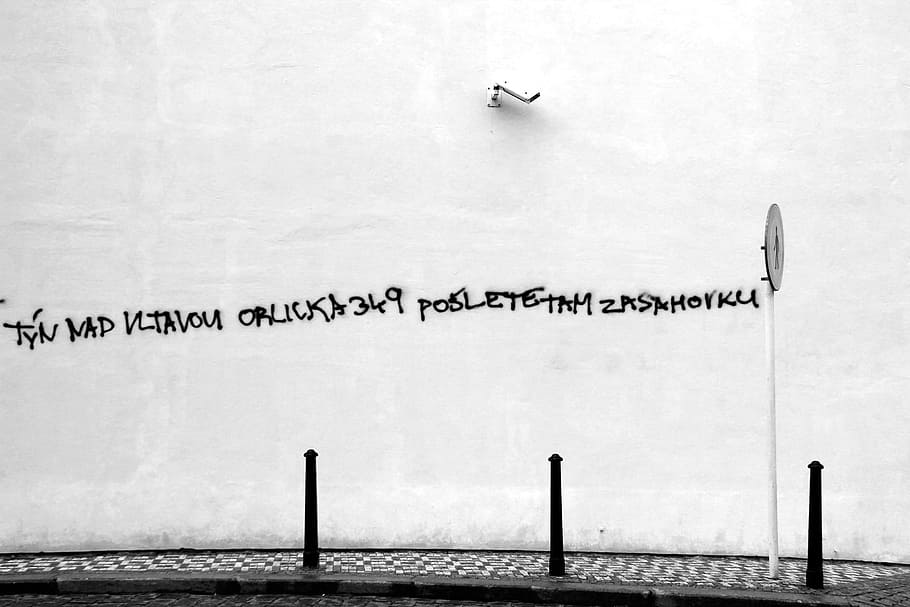 TÝN NAD VLTAVOU ORLICKÁ 349 POŠLETE TAM ZÁSAHOVKU